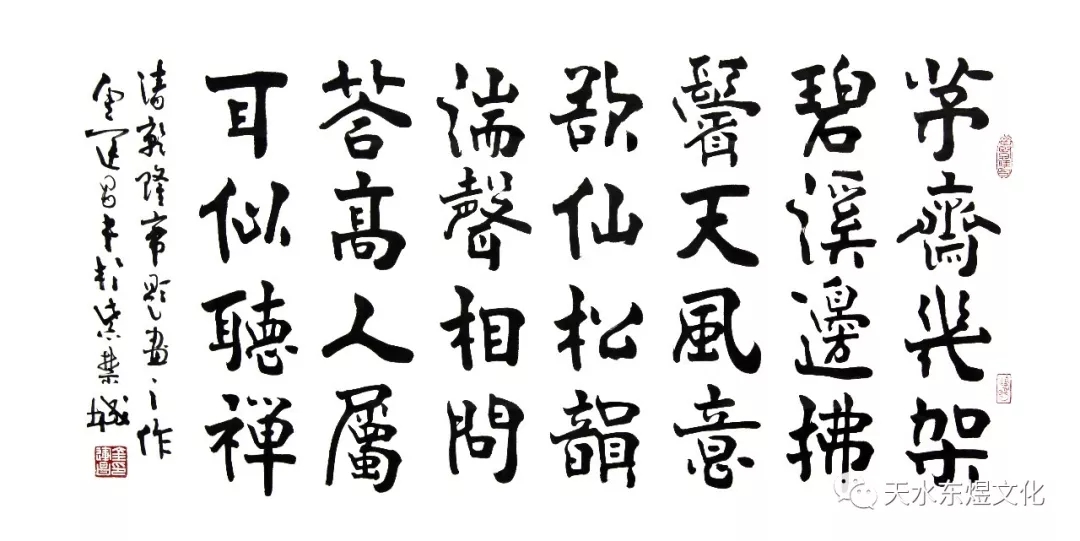 茅齋幾架
碧溪邊拂
鬢天風意
欲仙松韻
湍聲相問
荅高人屬
耳似聽禪
清乾隆帝題畫之作
金運昌書於紫禁城
天水东煜文化